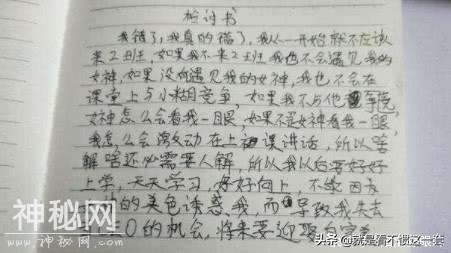 检讨书
我错了,我真的错了,我从一开始就不应该
来2班,如果我不来2班我也不会遇见我的
女神,如果没有遇见我的女神,我也不会在
课堂上与小胖竞争,如果我不与他争宠
女神怎么会看我一眼,如果不是女神看我一眼
我怎么会激动在上课讲话,所以
解 还必需要人解,所以我以后要好好
上学,天天学习,好好向上,不能因为
的美色诱惑我,而导致我失去
O的机会,将来要迎娶白富美
神秘网
www.神秘网.com
头条 @就是看不惯这一套